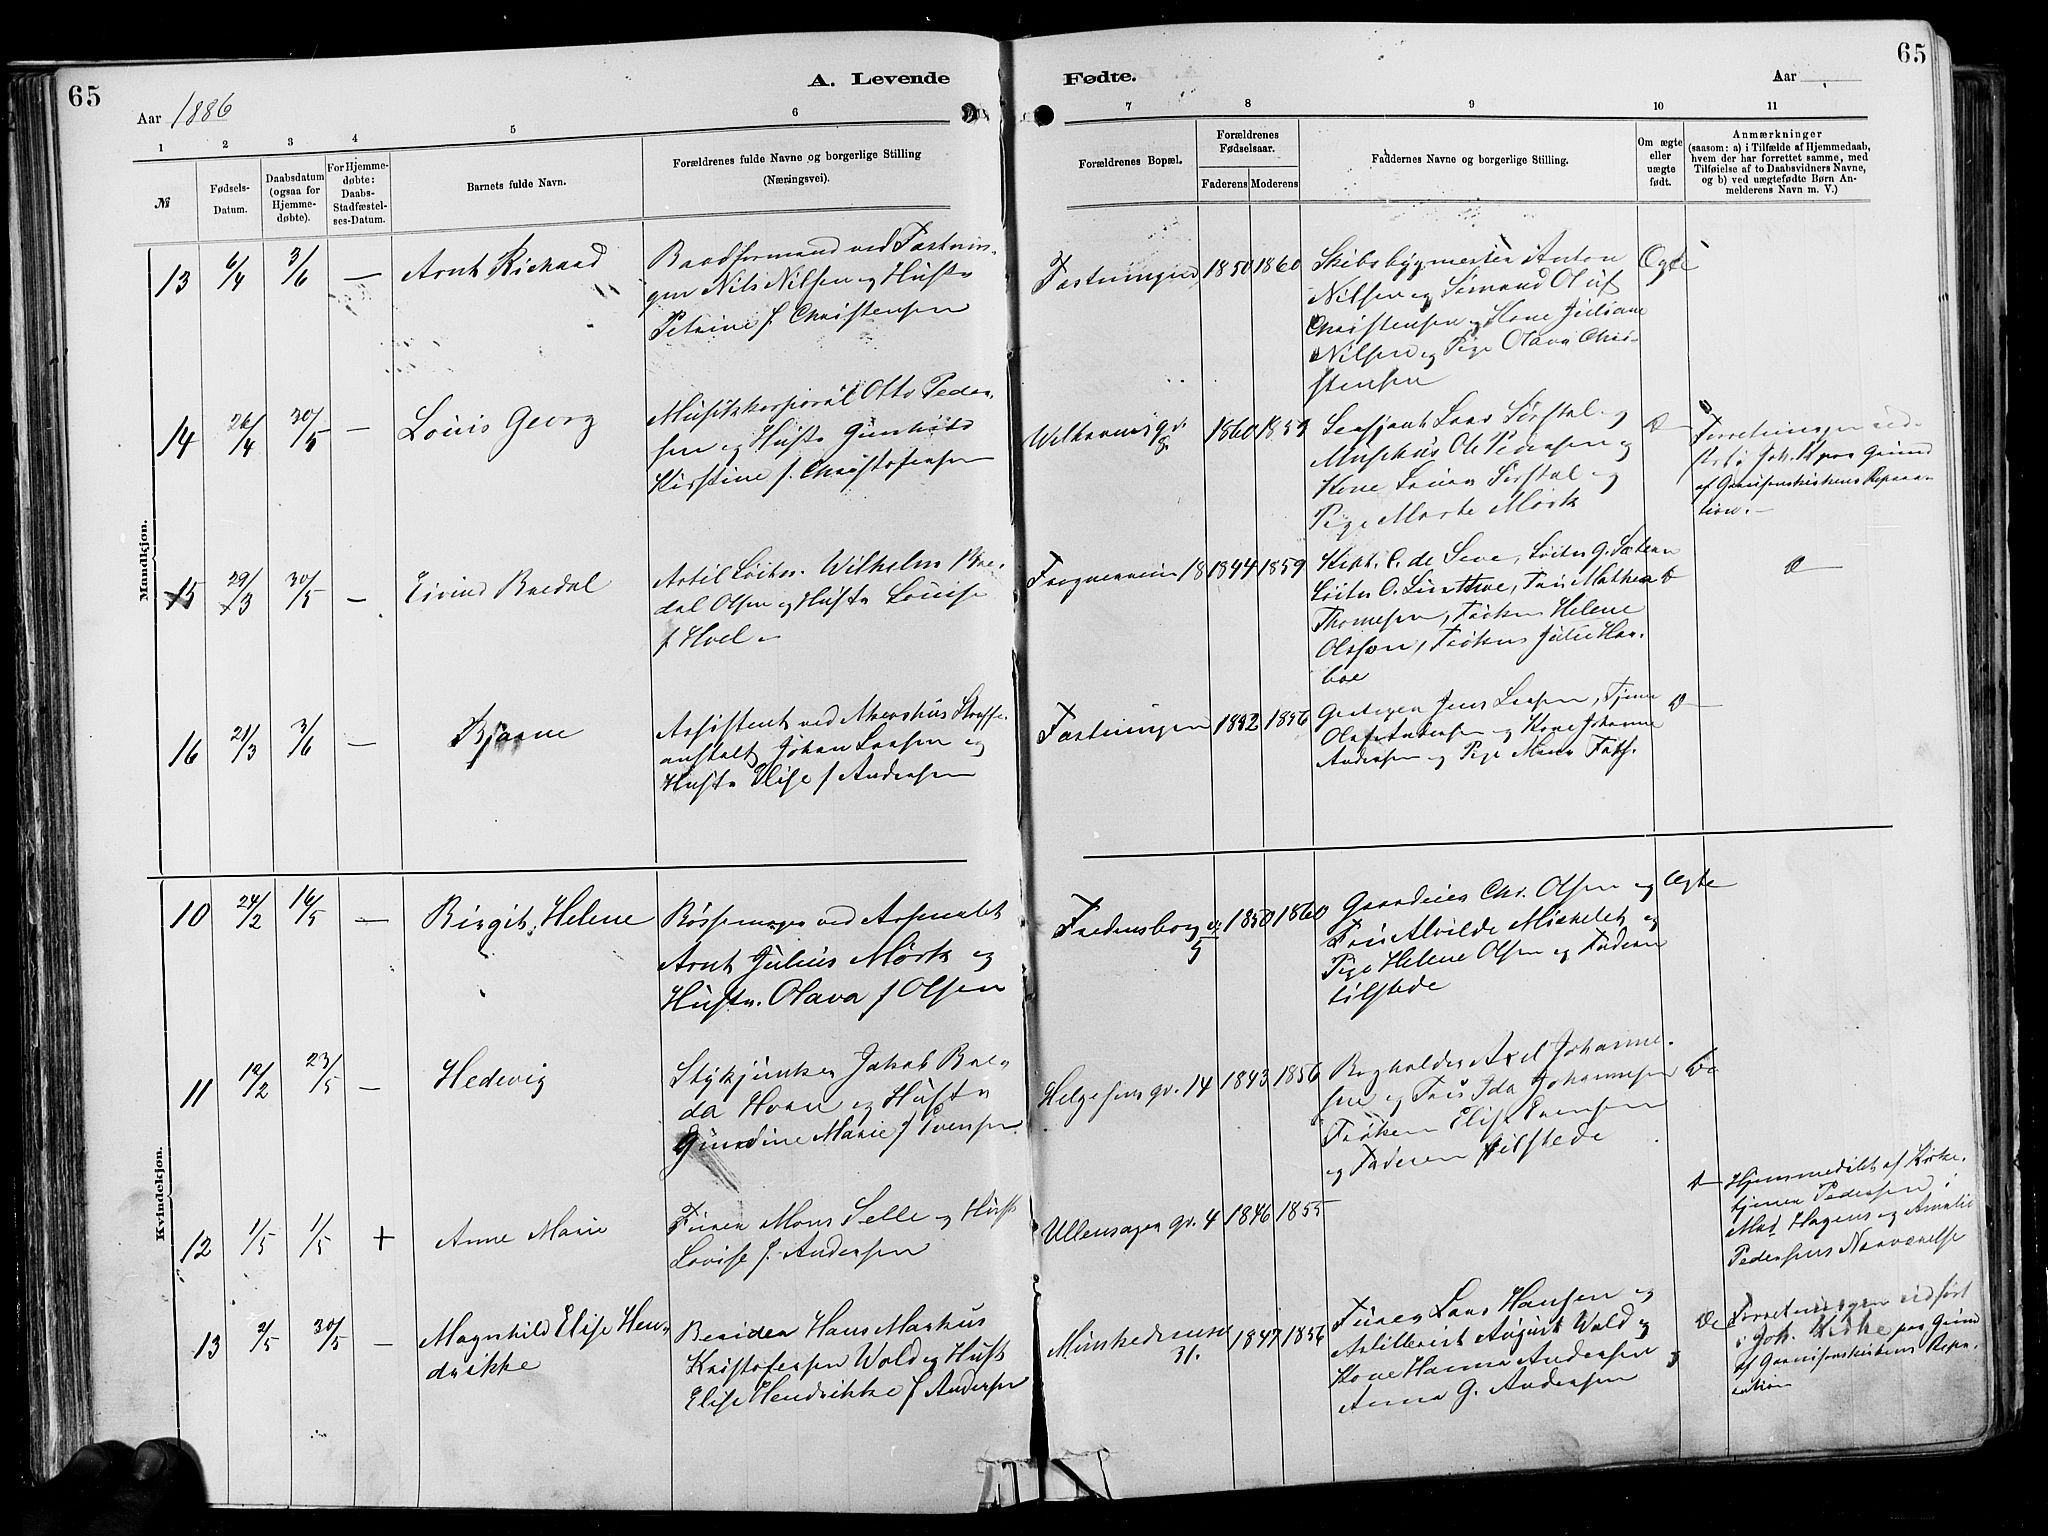 65
A. Levende Fødte.
65
Aar 1886
Aar
1 2 3 4 5 6 7 8 9 10 11
№
Fødsels-
Datum.
Daabsdatum
(ogsaa for
Hjemme-
døbte).
For Hjemme-
døbte:
Daabs-
Stadfæstel-
ses-Datum.
Barnets fulde Navn.
Forældrenes fulde Navne og borgerlige Stilling
(Næringsvei).
Forældrenes Bopæl.
Forældrenes
Fødselsaar.
Faderens Moderens
Faddernes Navne og borgerlige Stilling.
Om ægte
eller
uægte
født.
Anmærkninger
(saasom: a) i Tilfælde af Hjemmedaab,
hvem der har forrettet samme, med
Tilføielse af to Daabsvidners Navne,
og b) ved uægtefødte Børn An-
melderens Navn m. V.)
Mandkjøn.
13 6/4 3/6 — Arnt Richard
Baadformand ved Fæstnin-
gen Nils Nilsen og Hustr
Petrine f. Christensen
Fæstningen 1850 1860
Skibsbygmester Anton
Nilsen og Sømand Oluf
Christensen og Kone Juliane
Nilsen og Pige Olava Chri-
stensen
Ægte
14 26/4 30/5 — Louis Georg
Musikkorporal Otto Peder-
sen og Hustr Gunhild
Kirstine f. Christofersen
Welhavensgd. 8. 1860 1859
Sersjant Lars Sørstal og
Musikus Ole Pedersen og
Kone Louise Sørstal og
Pige Marte Mørk
Forretningen ud-
ført i Joh. K paa Grund
af Garnisonskirkens Repara-
tion.—
15 29/3 30/5 — Eivind Bredal
Artil Løitn. Wilhelm Bre-
dal Olsen og Hustr Louise
f Hoel
Frognerveien 18 1844 1859
Kapt. C. de Seve, Løitn G. Sætern
Løitn O. , Fru Mathea
Thomesen, Frøken Helene
Olssøn, Frøken Julie Har-
boe
16 21/3 3/6 — Bjarne
Assistent ved Akershus Straffe-
anstalt Johan Larsen og
Hustr Elise f Andersen
Fæstningen 1852 1856
Jens Larsen, Tjener
Olaf Andersen og Kone Johanne
Andersen og Pige
Kvindekjøn.
10 24/2 16/5 — Birgit Helene
Bøssemager ved Arsenalet
Arnt Julius Mørk og
Hustr. Olava f Olsen
Fredensborgv 5 1850 1860
Gaardeier Chr. Olsen og
Fru Alvilde Michelet og
Pige Helene Olsen og Faderen
tilstede
Ægte
11 12/2 23/5 — Hedevig
Stykjunker Jakob Bre-
da Hvam og Hustr
Gundine Marie f Svensen
Helgesensgd. 14 1843 1856
Bogholder Axel Johanne-
sen og Fru Ida Johannesen
Frøken Elise Svensen
og Faderen tilstede
Do
12 1/5 1/5 + Anne Marie
Furer Mons Selle og Hustr
Lovise f. Andersen
Ullensagergd. 4 1846 1855
Hjemmedøbt af Kirke-
tjener Pedersen i
Mad Hagens og Amalie
Pedersens Nærværelse
13 2/5 30/5 — Magnhild Elise Hen-
drikke
Berider Hans Markus
Kristofersen Wold og Hustr
Elise Hendrikke f Andersen
Munkedamsv 31. 1847 1856
Furer Lars Hansen og
Artillerist August Wold og
Kone Hanna Andersen
Anna G. Andersen
Do
Forretningen udført
i Joh. Kirke paa Grund
af Garnisonskirkens Repa-
ration